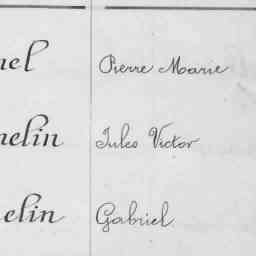 nel Pierre Marie
nelin Jules Victor
elin Gabriel